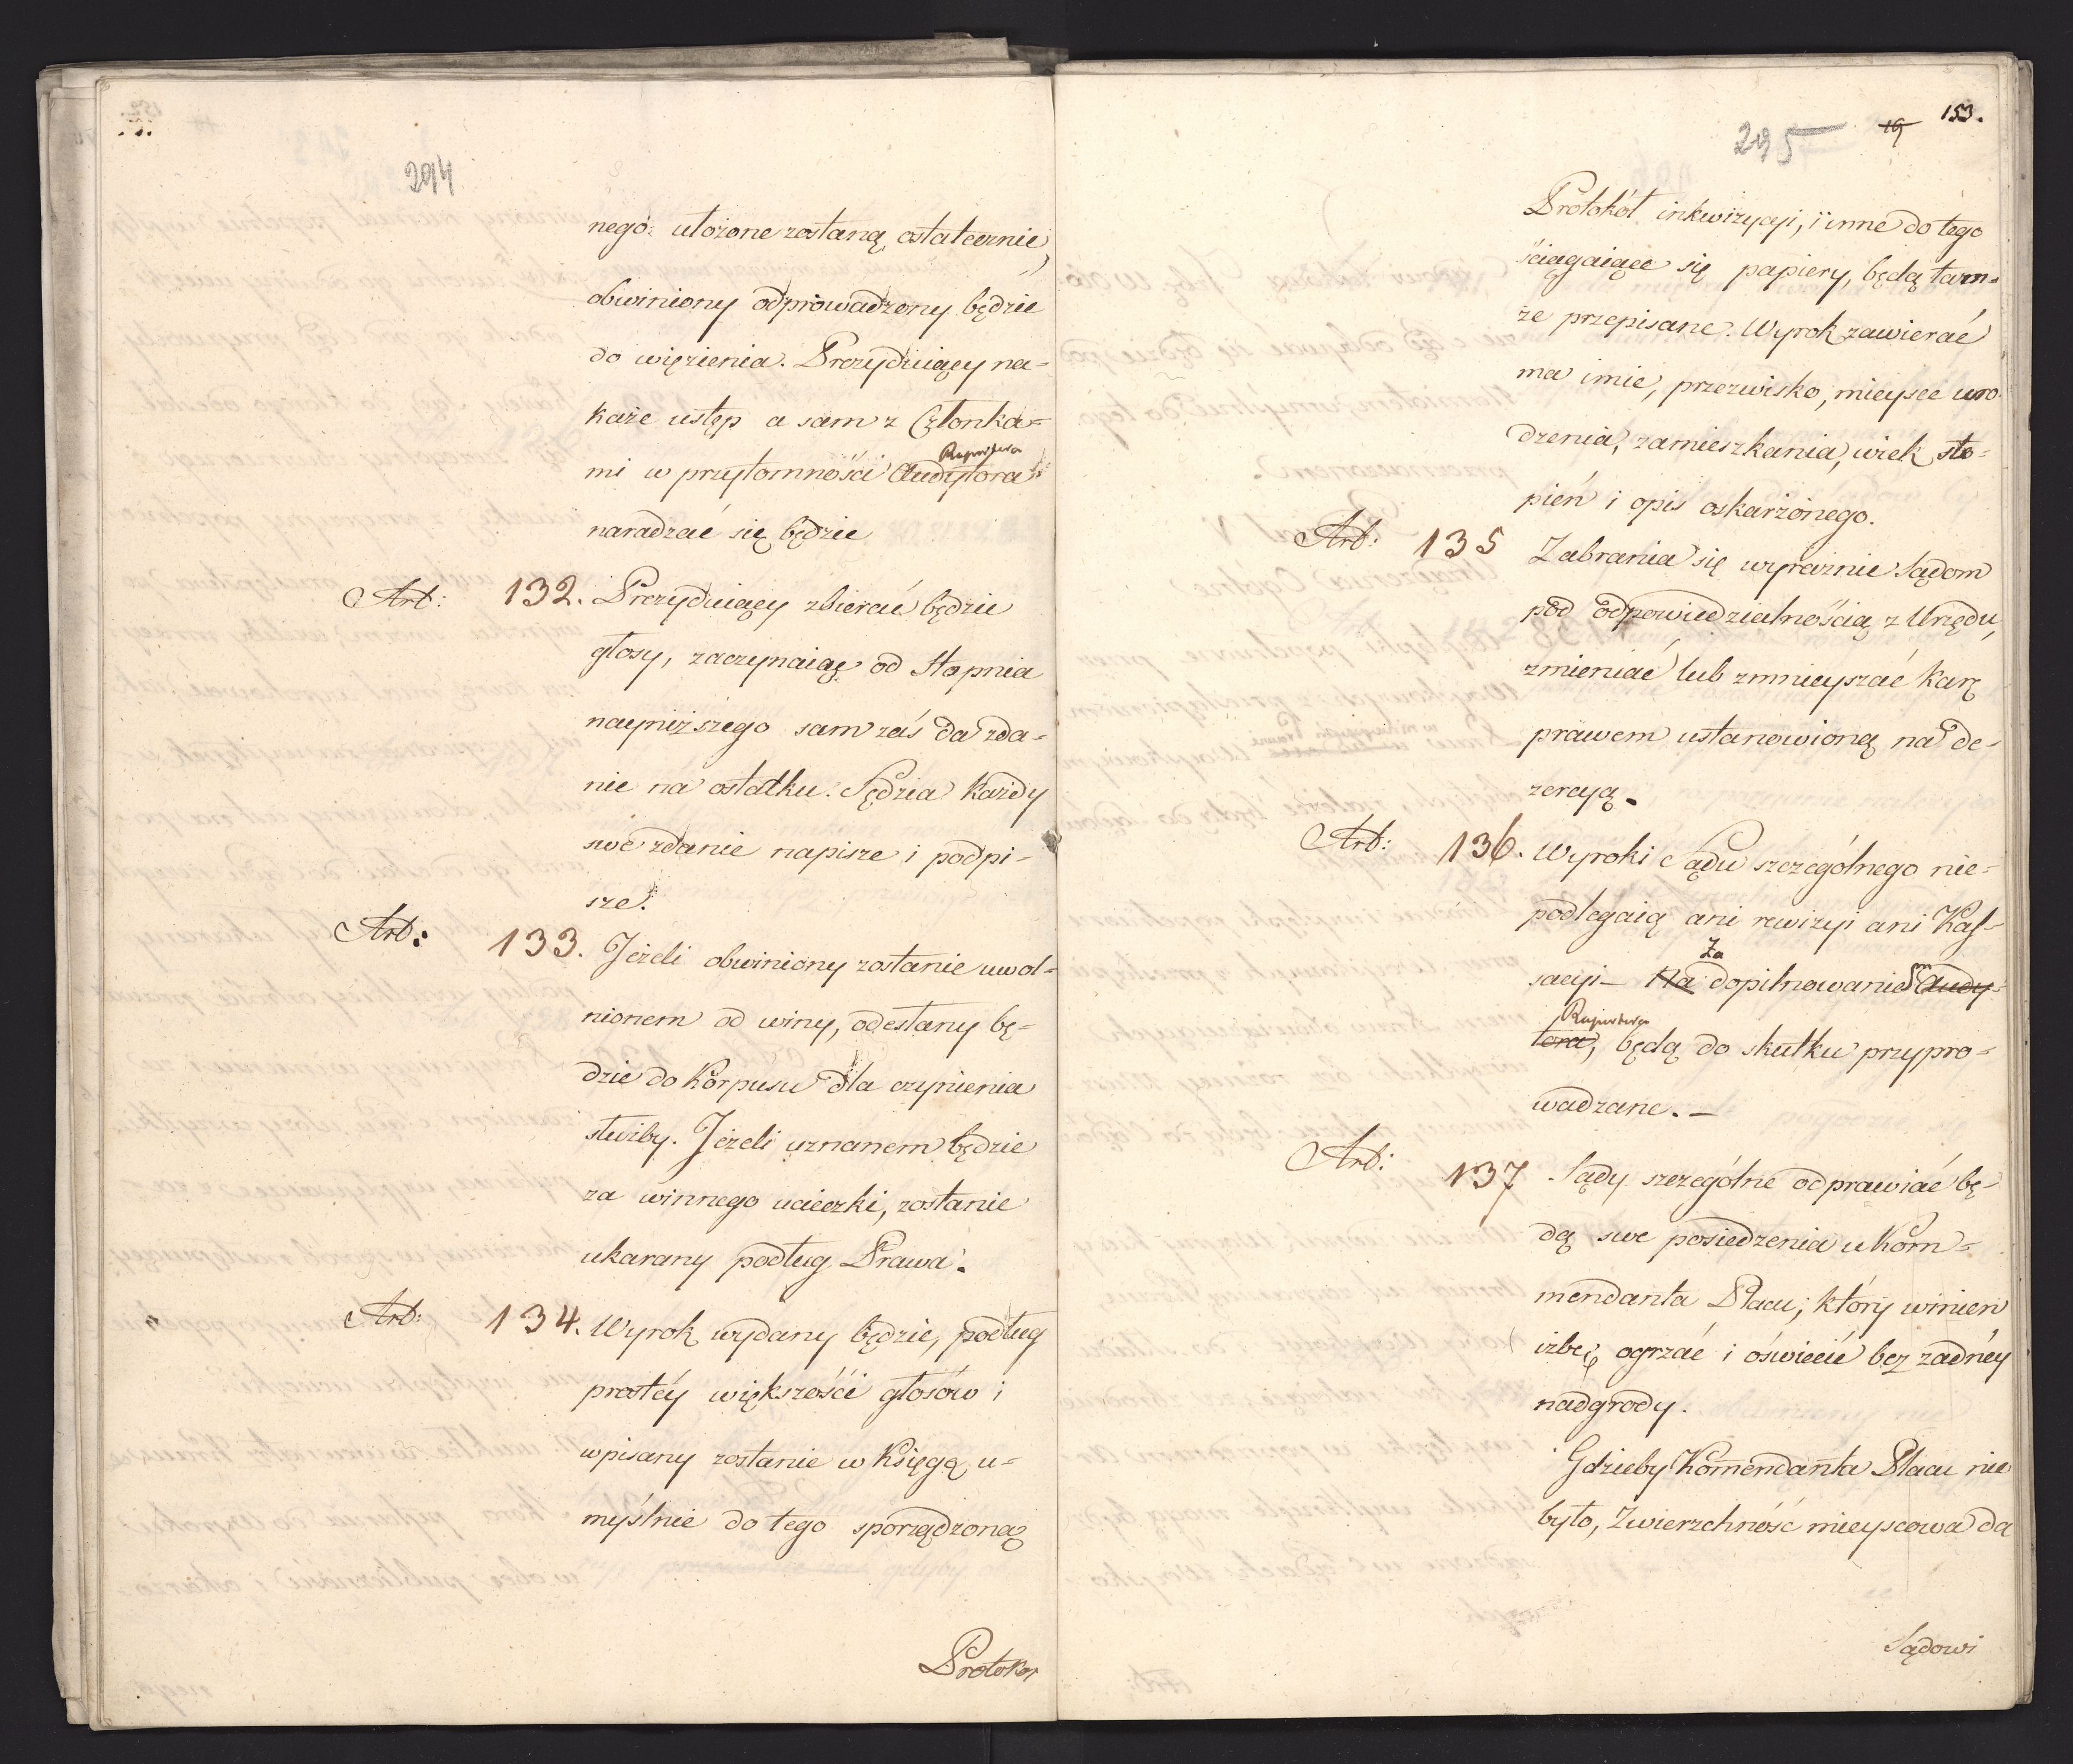 294
nego ułożone zostaną ostatecznie,
obwiniony odprowadzony będzie
do więzienia. Prezyduiący na-
każe ustęp a sam z Członka=
mi w przytomności Audytora
naradzać się będzie
Art: 132. Prezyduiący zbierać będzie
głosy, zaczynaiąc od Stopnia
nayniższego sam zaś da zda=
nie na ostatku. Sędzia każdy
swe zdanie napisze i podpi-
sze.
Art: 133. Jeżeli obwiniony zostanie uwol=
nionem od winy, odesłany bę=
dzie do Korpusu dla czynienia
służby. Jeżeli uznanem będzie
za winnego ucieczki, zostanie
ukarany podług Prawa.
Art: 134. Wyrok wydany będzie, podług
prostéy większości głosów i
wpisany zostanie w Księgę u=
myślnie do tego sporządzoną
Protokoł
295 19 153.
Protokół inkwizycyi, i inne do tego
ściągaiące się papiery, będą tam=
że przepisane. Wyrok zawierać
ma imie, przezwisko, mieysce uro
dzenia, zamieszkania, wiek, sto=
pień i opis oskarżonego.
Art: 135 Zabrania się wyraźnie Sądom
pod odpowiedzialnością z Urzędu,
zmieniać lub zmnieyszać karę
prawem ustanowioną na de-
zercyą.
Art: 136. Wyroki Sądu szczególnego nie=
podlegaią ani rewizyi ani Kas-
Za
sacyi – Na dopilnowaniem Audy=
Raportera
tora, będą do skutku przypro=
wadzane. –
Art: 137 Sądy szczególne odprawiać bę=
dą swe posiedzenia u Kom=
mendanta Placu; który winien
izbę ogrzać i oświecić bez żadnéy
nadgrody.
Gdzieby Komendanta Placu nie
było, Zwierzchność mieyscowa da
Sądowi